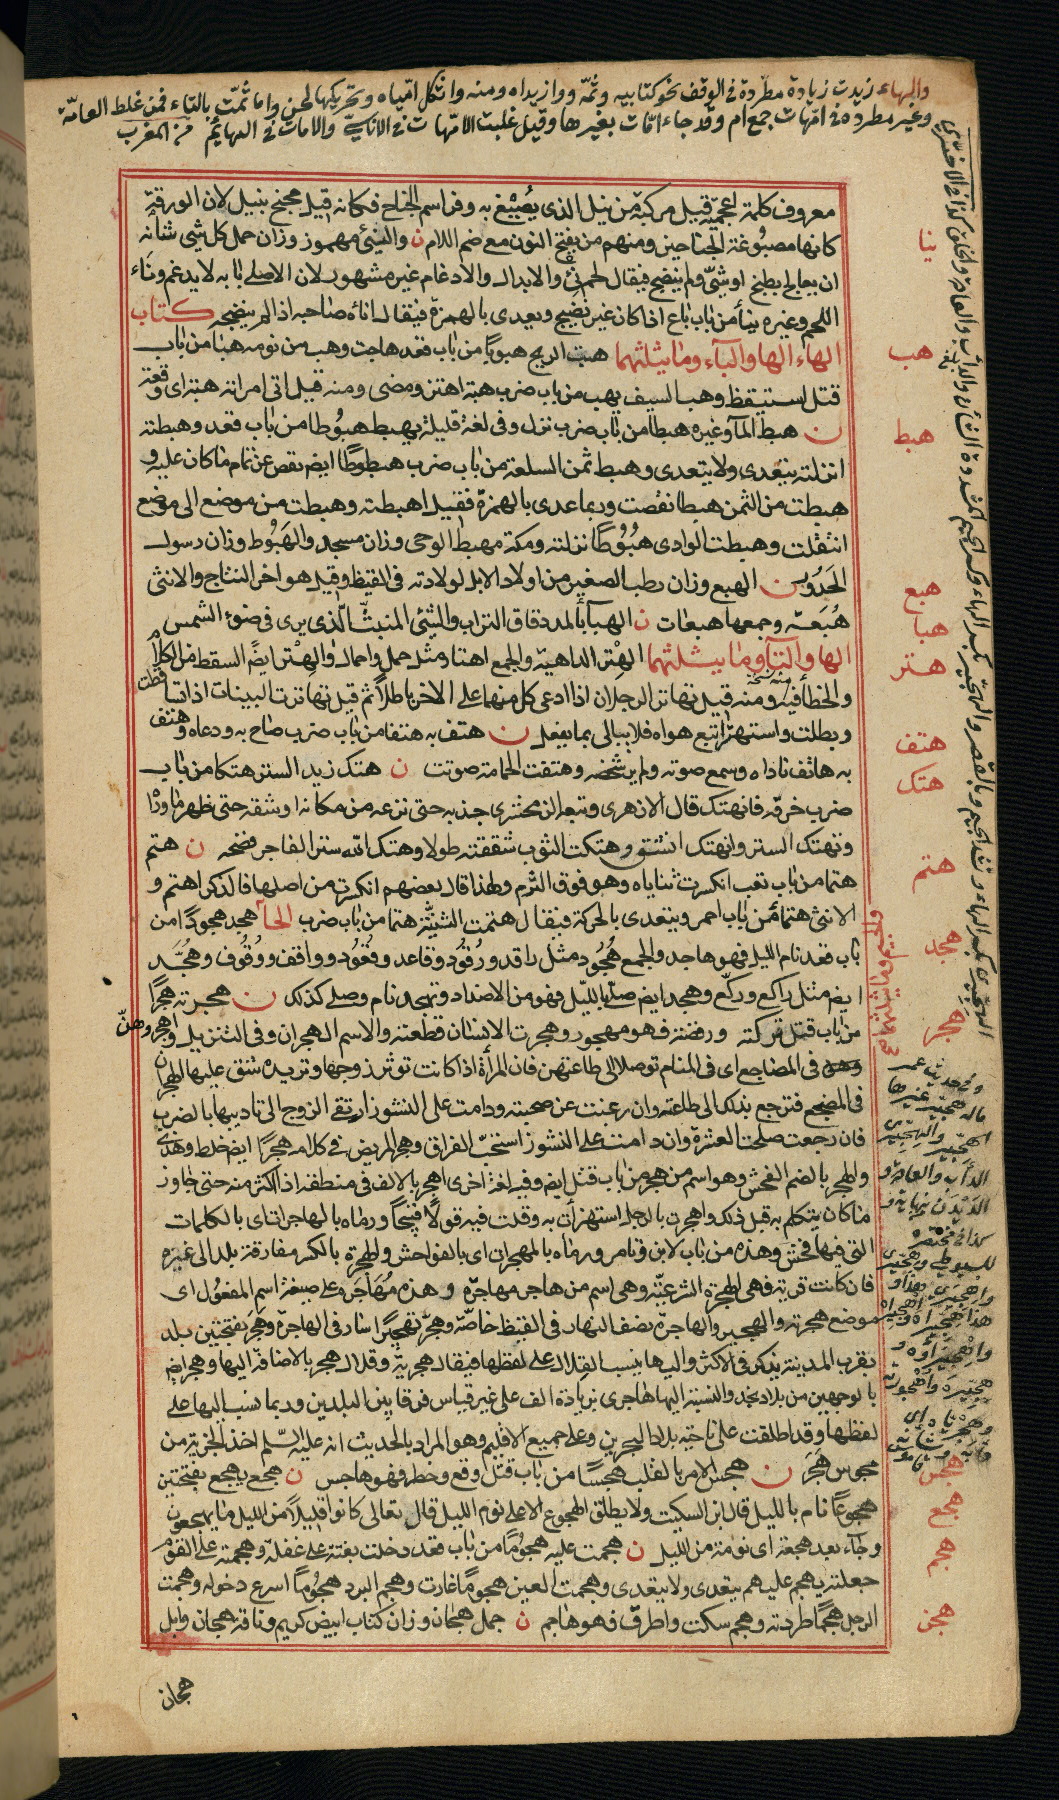 والهاء زيدت زيادة مطردة في الوقف نحو كتابيه وثمّه ووازيداه ومنه واثكل امّياه وتحريكها لحن واما ثمّت بالتاء فمن غلط العامّة
وغير مطردة في امّهات جمع ام وقد جاء امّات بغيرها وقيل غلبت الامّهات في الاناسيّ والامات في البهايم من المغرب
معروف كلمة اعجمية قيل مركبة من نيل الذي يُصْبَغ به وفر اسم الجناح فكانه قيل مجنح بنيل لان الورقة
كانها مصبُوغة الجناحين ومنهم من يفتح النون مع ضم اللام ن والنيئ مهموز وزان حمل كل شي شانه
ان يعالج بطبخ او شيّ ولم ينضج فيقال لحم نيئ والابدال والادغام غير مشهور لان الاصلي بابه لا يدغم وناء
اللحم وغيره ينيأ من باب باع اذا كان غير نضيج ويعدى بالهمزة فيقال اناءه صاحبه اذا لم ينضجه كتاب
الهاء الهاء والباء وما يثلثهما هبت الريح هبوبا من باب قعد هاجت وهب من نومه هبا من باب
قتل استيقظ وهب السيف يهب من باب ضرب هبة اهتز ومضى ومنه قيل اتى امراته هبة اي وقعة
ن هبط الماء وغيره هبطا من باب ضرب نزل وفي لغة قليلة يهبط هبُوطا من باب قعد وهبطته
انزلته يتعدى ولا يتعدى وهبط ثمن السلعة من باب ضرب هبطوطا ايضا نقص عن تمام ما كان عليه و
هبطت من الثمن هبطا نقصت وربما عدى بالهمزة فقيل اهبطته وهبطت من موضع الى موضع
انتقلت وهبطت الوادي هُبُوُطًا نزلته ومكة مهبط الوحي وزان مسجد والهَبُوط وزان رسول
الحَدُور ن الهبع وزان رطب الصغير من اولاد الابل لولادته في القيظ وقيل هو اخر النتاج والانثى
هُبَعَة وجمعها هبعات ن الهباء بالمد دقاق التراب والشئ المنبثّ الّذي يرى في ضوء الشمس
الهاء والتاء وما يثلثهما الهِتر الداهية والجمع اهتار مثل حمل واحمال والهتر ايضا السقط من الكلام
والخطأ فيه ومنه قيل تهاتر الرجلان اذا ادعى كل منهما على الاخر باطلا ثم قيل تهاترت البينات اذا تساقطت
وبطلت واستهتر اتبع هواه فلا يبالي بما يفعل ن هتف به هتفا من باب ضرب صاح به ودعاه وهتف
به هاتف ناداه وسمع صوته ولم ير شخصه وهتفت الحمامة صوتت ن هتك زيد الستر هتكا من باب
ضرب خرقه فانهتك قال الازهري وتبعه الزمخشري جذبه حتى نزعه من مكانه او شقه حتى ظهر ما وراه
وتهتك الستر وانهتك انشق وهتكت الثوب شققته طولا وهتك الله ستر الفاجر فضحه ن هتم
هتما من باب تعب انكسرت ثناياه وهو فوق الثرم ولهذا قال بعضهم انكسرت من اصلها فالذكر اهتم و
الانثى هتماء من باب احمر ويتعدى بالحركة فيقال هتمت الثنيّة هتما من باب ضرب الهاء هجد هجودًا من
باب قعد نام الليل فهو هاجد والجمع هُجُود مثل راقد ورُقُود وقاعد وقُعُود وواقف ووُقُوف وهُجَّد
ايضا مثل راكع وركّع وهجد ايضا صلّى بالليل فهو من الاضداد وتهجد نام وصلى كذلك ن هجرته هجرًا
من باب قتل تركته ورفضته فهو مهجور وهجرت الانسان قطعته والاسم الهجران وفي التنزيل واهجروهنّ
في المضاجع اي في المنام توصلا الى طاعتهن فان المرأة اذا كانت تؤثر زوجها وتريده شق عليها الهجران
في المضجع فترجع بذلك الى طاعته وان رغبت عن صحبته ودامت على النشوز ارتقى الزوج الى تاديبها بالضرب
فان رجعت صلحت العشرة وان دامت على النشوز استحبّ الفراق وهجر المريض في كلامه هجرًا ايضا خلط وهذى
والهجر بالضم الفحش وهو اسم من هجر من باب قتل ايضا وفيه لغة اخرى اهجر بالالف في منطقه اذا اكثر منه حتى جاوز
ما كان يتكلم به قبل ذلك واهجرت بالرجل استهزات به وقلت فيه قولًا قبيحًا ورماه بالهاجرات اي بالكلمات
التي فيها فحش وهذه من باب لابن وتامر ورماه بالمهجرات اي بالفواحش والهجرة بالكسر مفارقة بلد الى غيره
فان كانت قربة فهي الهجرة الشرعيّة وهي اسم من هاجر مهاجرة وهذه مُهَاجَرَه على صيغة اسم المفعُول اي
موضع هجرته والهجير والهاجرة نصف النهار في القيظ خاصّة وهجّر تهجيرًا سار في الهاجرة وهَجَر بفتحتين بلد
بقرب المدينة يذكر في الاكثر واليها ينسب القلال على لفظها فيقال هجرية وقلال هجر بالاضافة اليها وهجر ايضا
بالوجهين من بلاد نجد والنسبة اليها هاجري بزيادة الف على غير قياس فرقا بين البلدين وربما نسب اليها على
لفظها وقد اطلقت على ناحية بلاد البحرين وعلى جميع الاقليم وهو المراد بالحديث انه عليه السّلم اخذ الجزية من
مجوس هَجَر ن هجس الامر بالقلب هجسًا من باب قتل وقع وخطر فهو هاجس ن هجع يهجع بفتحتين
هجوعًا نام بالليل قال ابن السكيت ولا يطلق الهجوع الا على نوم الليل قال تعالى كانوا قليلًا من الليل ما يهجعون
وجاء بعد هجعة اي نومة من الليل ن هجمت عليه هجُومًا من باب قعد دخلت بغتة على غفلة وهجمته على القوم
جعلته يهجم عليهم يتعدى ولا يتعدى وهجمت العين هجومًا غارت وهجم البرد هجُومًا اسرع دخوله وهجمت
الرجل هجمًا طردته وهجم سكت واطرق فهو هاجم ن جمل هجان وزان كتاب ابيض كريم وناقة هجان وابل
هجان
نيا
هب
هبط
هبع
هبا
هتر
هتف
هتك
هتم
هجد
والجيم وما يثلثهما
هجر
هجس
هجع
هجم
هجن